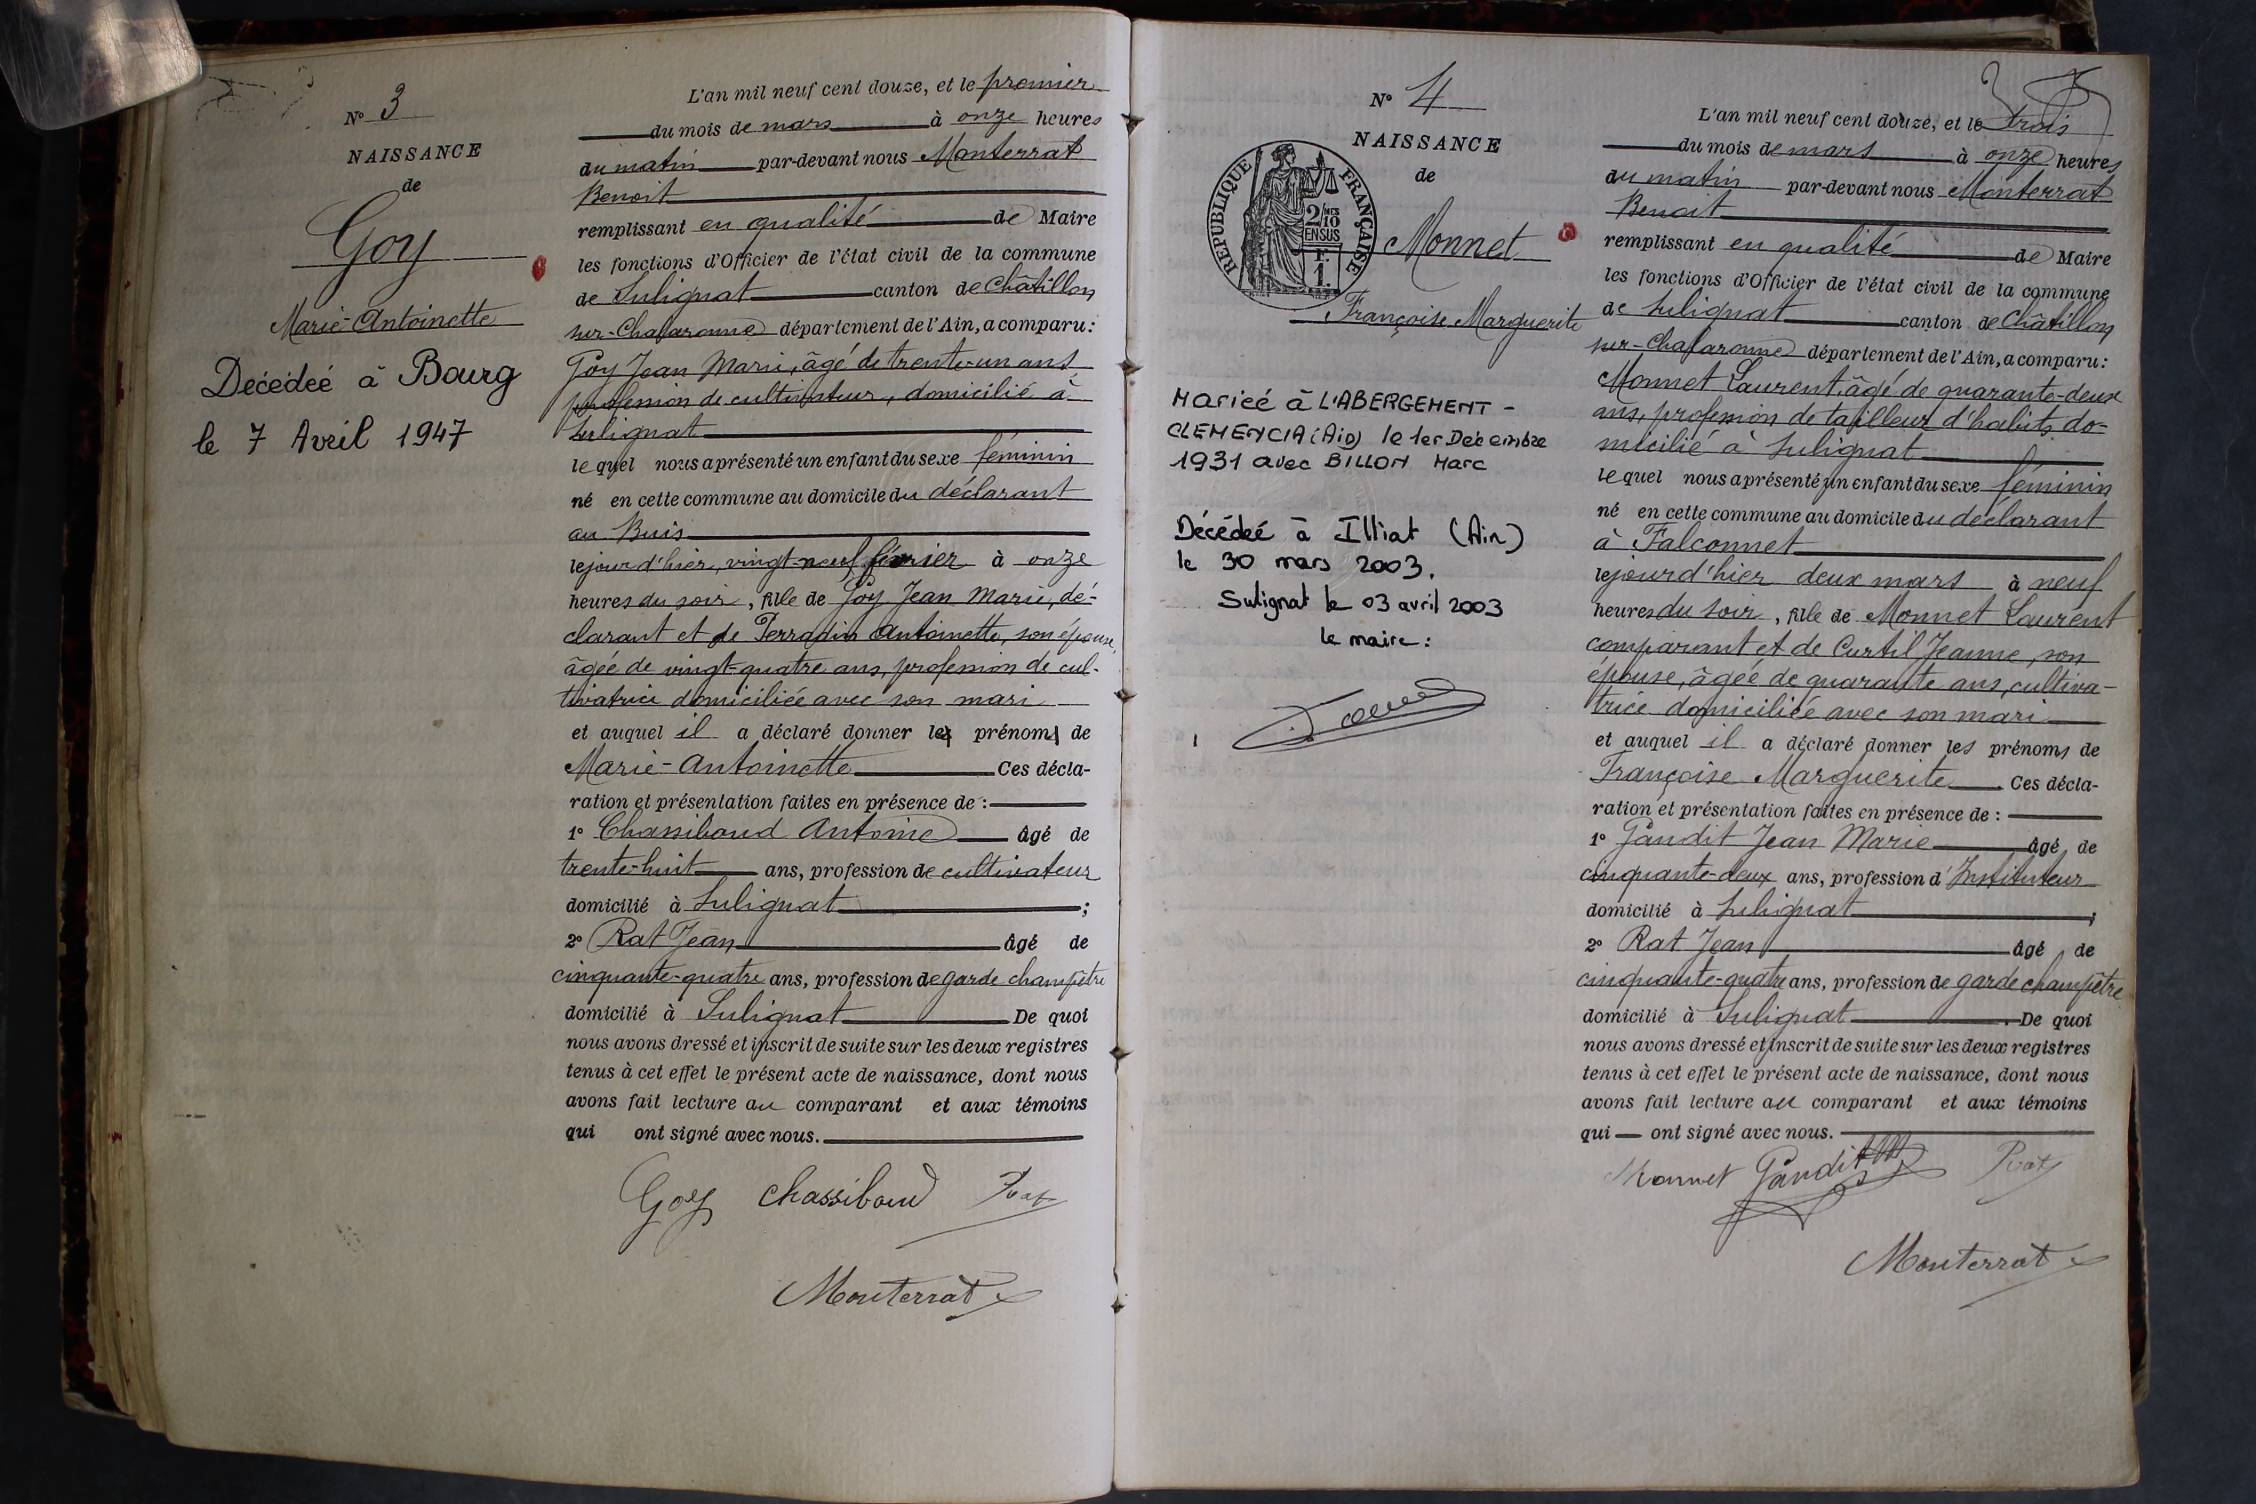 N° 3
NAISSANCE
de
Goy
Marie-Antoinette
Décédée à Bourg
le 7 Avril 1947
L'an mil neuf cent douze, et le premier
du mois de mars à onze heures
du matin par-devant nous Monterrat
Benoit
remplissant en qualité de Maire
les fonctions d'Officier de l'état civil de la commune
de Sulignat canton de Châtillon
sur-Chalaronne département de l'Ain, a comparu :
Goy Jean Marie, âgé de trente-un ans
profession de cultivateur, domicilié à
Sulignat
lequel nous a présenté un enfant du sexe féminin
né en cette commune au domicile du déclarant
au Buis
le jour d'hier, vingt-neuf février à onze
heures du soir, fille de Goy Jean Marie, dé-
clarant et de Terradin Antoinette, son épouse,
âgée de vingt-quatre ans, profession de cul-
tivatrice domiciliée avec son mari
et auquel il a déclaré donner le prénom de
Marie-Antoinette Ces décla-
ration et présentation faites en présence de :
1° Chassiboud Antoine âgé de
trente-huit ans, profession de cultivateur
domicilié à Sulignat ;
2° Rat Jean âgé de
cinquante-quatre ans, profession de garde champêtre
domicilié à Sulignat De quoi
nous avons dressé et inscrit de suite sur les deux registres
tenus à cet effet le présent acte de naissance, dont nous
avons fait lecture au comparant et aux témoins
qui ont signé avec nous.
Goy Chassiboud Rat
Monterrat
N° 4
NAISSANCE
de
RÉPUBLIQUE FRANÇAISE
2/10 MES
EN SUS
F.
1.
Monnet
Françoise Marguerite
Mariée à L'ABERGEMENT -
CLEMENCIA (Ain) le 1er Décembre
1931 avec BILLON Marc
Décédée à Illiat (Ain)
le 30 mars 2003.
Sulignat le 03 avril 2003
le maire :
3
L'an mil neuf cent douze, et le trois
du mois de mars à onze heures
du matin par-devant nous Monterrat
Benoit
remplissant en qualité de Maire
les fonctions d'Officier de l'état civil de la commune
de Sulignat canton de Châtillon
sur-Chalaronne département de l'Ain, a comparu :
Monnet Laurent, âgé de quarante-deux
ans, profession de tailleur d'habits, do-
micilié à Sulignat
lequel nous a présenté un enfant du sexe féminin
né en cette commune au domicile du déclarant
à Falconnet
le jour d'hier deux mars à neuf
heures du soir, fille de Monnet Laurent
comparant et de Curtil Jeanne, son
épouse, âgée de quarante ans, cultiva-
trice domiciliée avec son mari
et auquel il a déclaré donner les prénoms de
Françoise Marguerite Ces décla-
ration et présentation faites en présence de :
1° Gandit Jean Marie âgé de
cinquante-deux ans, profession d'Instituteur
domicilié à Sulignat ;
2° Rat Jean âgé de
cinquante-quatre ans, profession de garde champêtre
domicilié à Sulignat . De quoi
nous avons dressé et inscrit de suite sur les deux registres
tenus à cet effet le présent acte de naissance, dont nous
avons fait lecture au comparant et aux témoins
qui — ont signé avec nous.
Monnet Gandit Rat
Monterrat